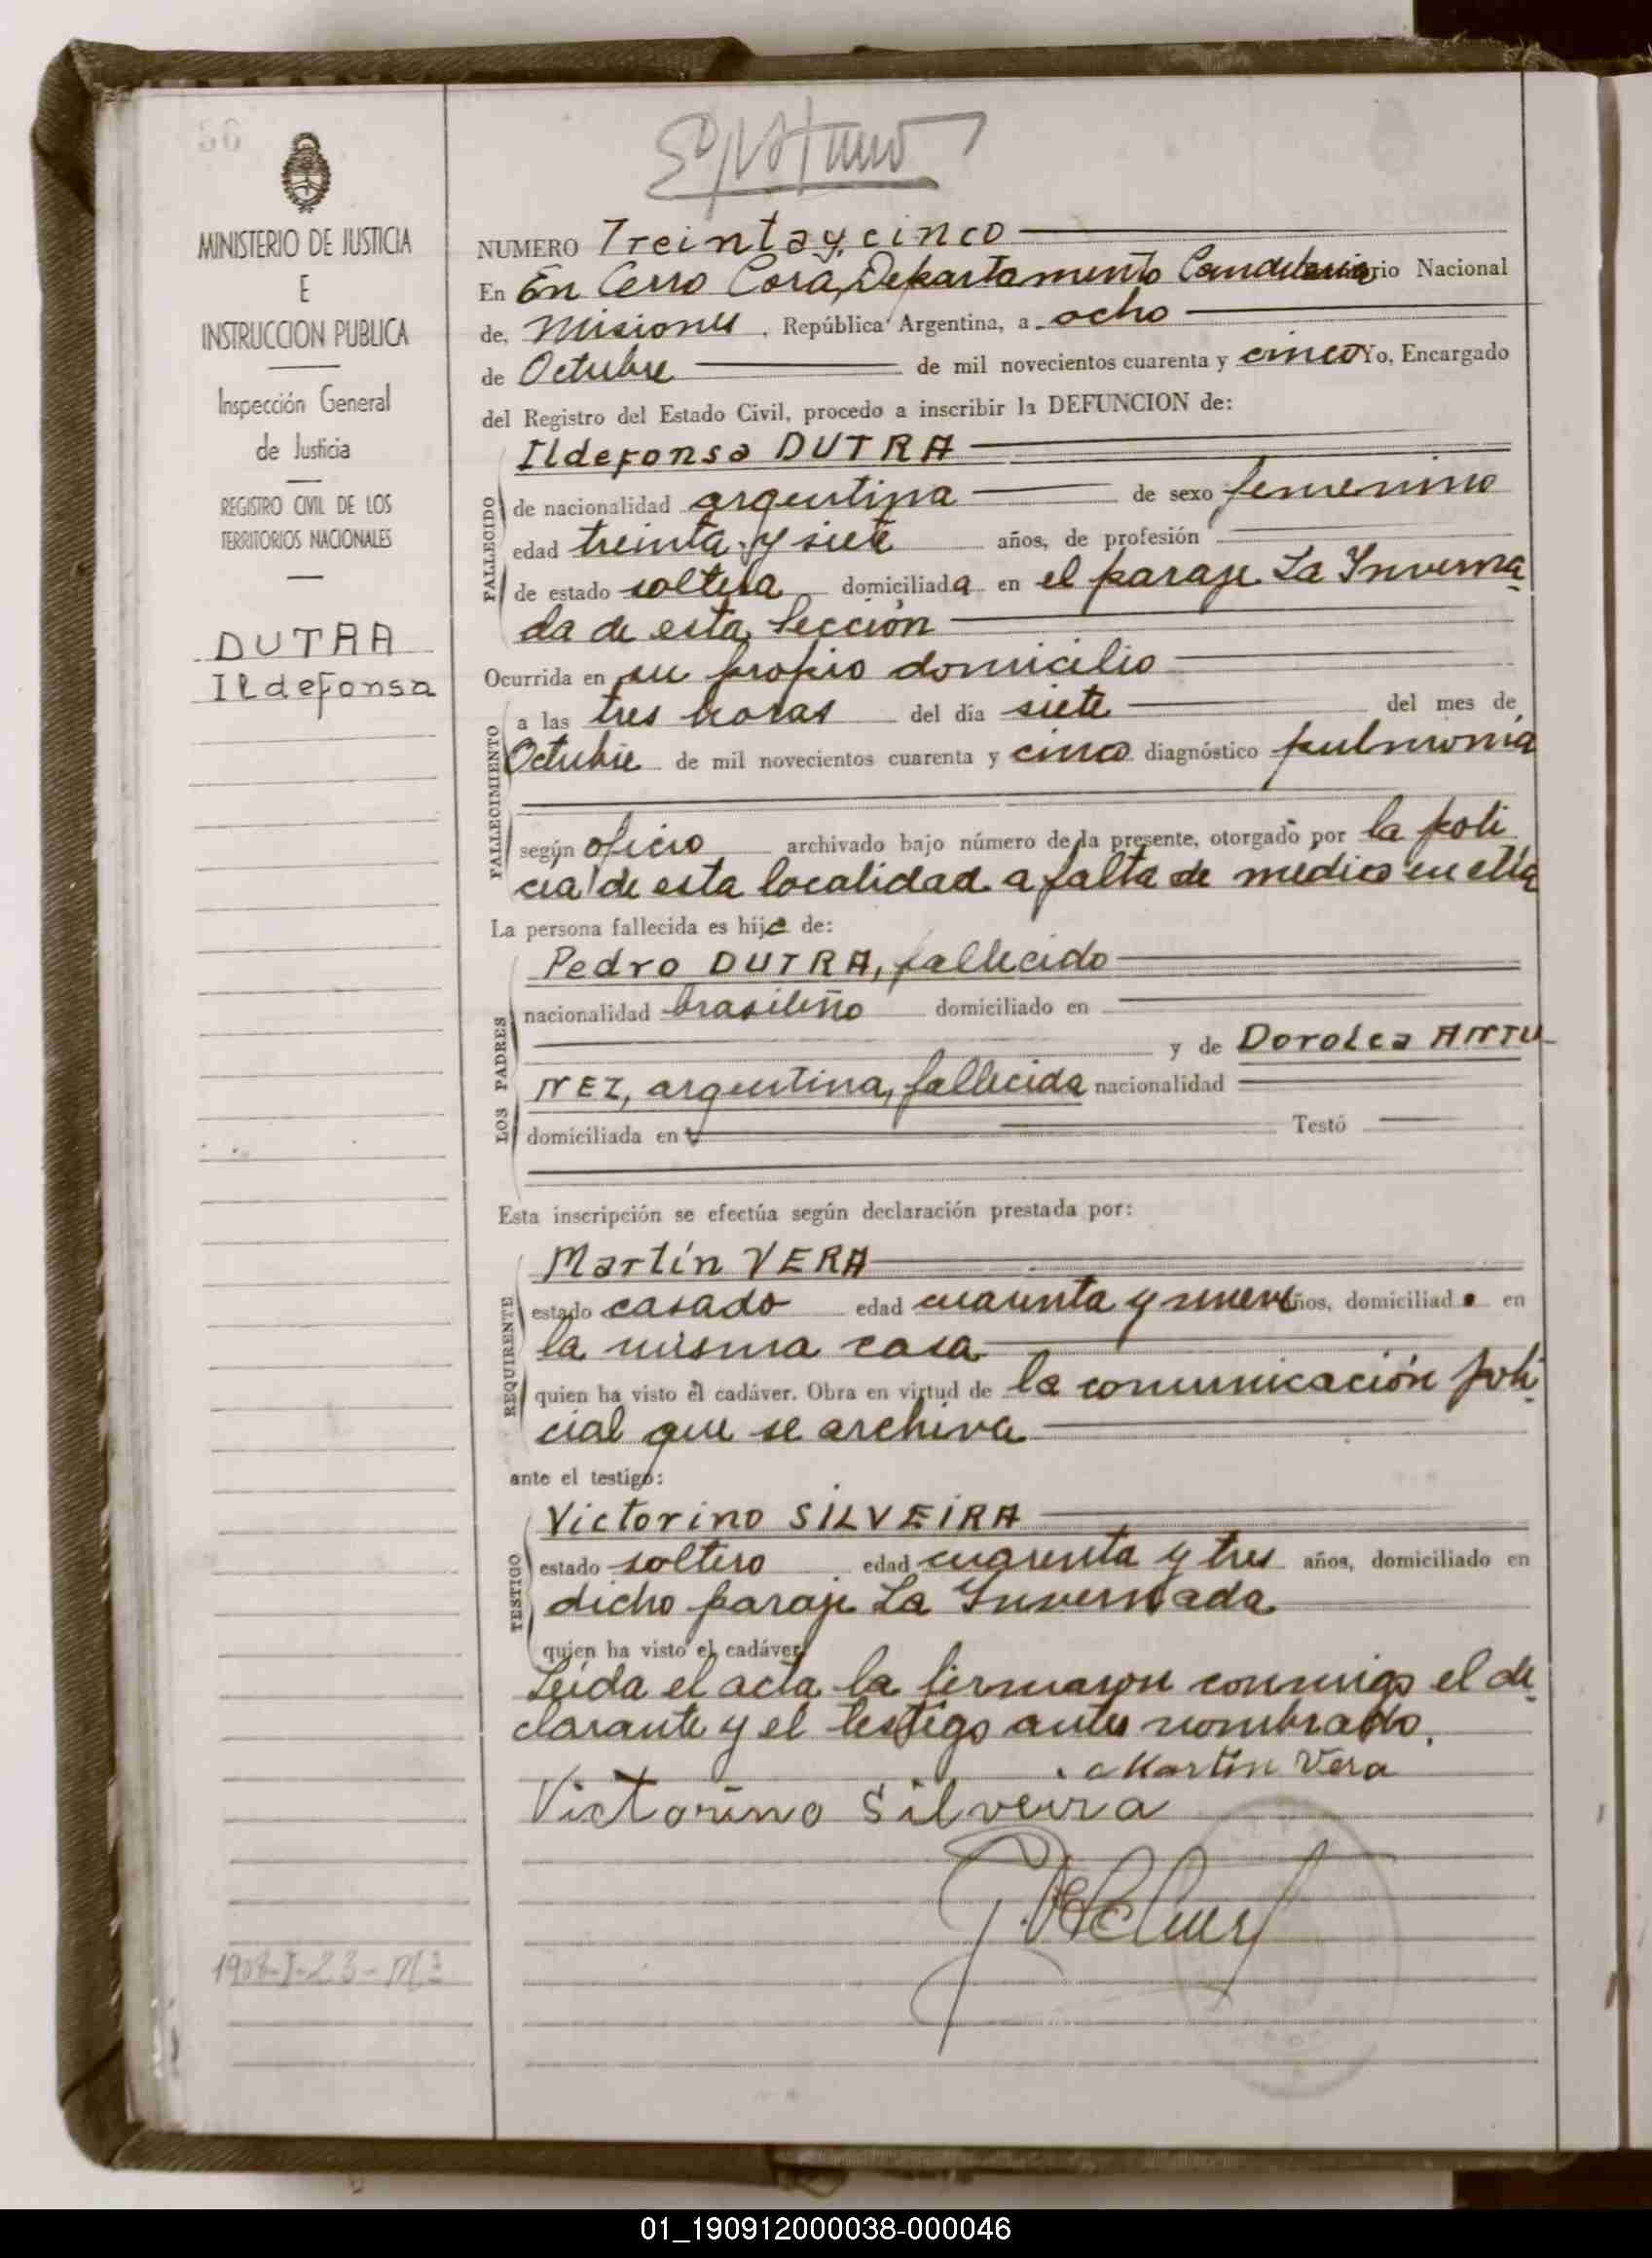 36
MINISTERIO DE JUSTICIA
E
INSTRUCCION PUBLICA
Inspección General
de Justicia
REGISTRO CIVIL DE LOS
TERRITORIOS NACIONALES
DUTRA
Ildefonsa
NUMERO Treinta y cinco
En En Cerro Corá, Departamento Candelaria rio Nacional
de, Misiones, República Argentina, a ocho
de Octubre de mil novecientos cuarenta y cinco Yo, Encargado
del Registro del Estado Civil, procedo a inscribir la DEFUNCION de:
Ildefonsa DUTRA
FALLECIDO
de nacionalidad argentina de sexo femenino
edad treinta y siete años, de profesión
de estado soltera domiciliada en el paraje La Inverna-
da de esta Sección
Ocurrida en su propio domicilio
FALLECIMIENTO
a las tres horas del día siete del mes de
Octubre de mil novecientos cuarenta y cinco diagnóstico pulmonía
según oficio archivado bajo número de la presente, otorgado por la poli
cia de esta localidad a falta de medico en ella
La persona fallecida es hija de:
LOS PADRES
Pedro DUTRA, fallecido
nacionalidad brasileño domiciliado en
y de Dorotea ANTU-
NEZ, argentina, fallecida nacionalidad
domiciliada en Testó
Esta inscripción se efectúa según declaración prestada por:
REQUIRENTE
Martín VERA
estado casado edad cuarenta y nueve años, domiciliado en
la misma casa
quien ha visto el cadáver. Obra en virtud de la comunicación poli-
cial que se archiva
ante el testigo:
TESTIGO
Victorino SILVEIRA
estado soltero edad cuarenta y tres años, domiciliado en
dicho paraje La Invernada
quien ha visto el cadáver
Leída el acta la firmaron conmigo el de-
clarante y el testigo antes nombrado.
Martin Vera
Victorino Silveira
01_190912000038-000046